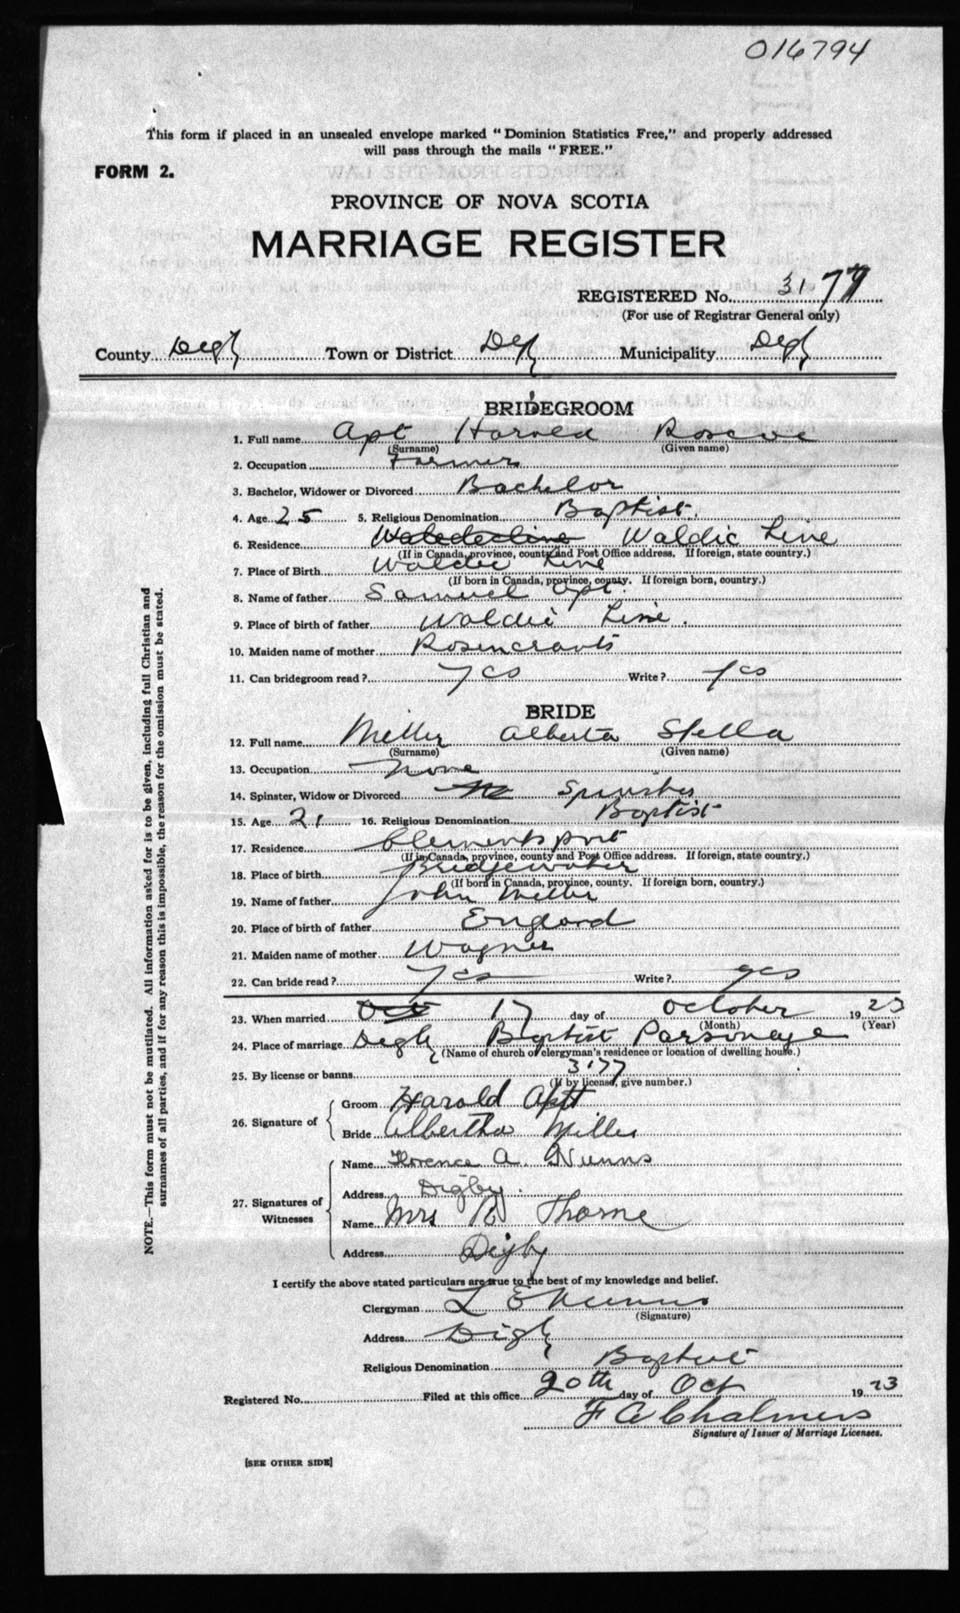 016794
This form if placed in an unsealed envelope marked "Dominion Statistics Free," and properly addressed
will pass through the mails "FREE."
FORM 2.
PROVINCE OF NOVA SCOTIA
MARRIAGE REGISTER
REGISTERED No. 3177
(For use of Registrar General only)
County Digby Town or District Digby Municipality Digby
BRIDEGROOM
1. Full name Apt Harold Roscoe
(Surname) (Given name)
2. Occupation Farmer
3. Bachelor, Widower or Divorced Bachelor
4. Age 25 5. Religious Denomination Baptist.
6. Residence Waldec Line
(If in Canada, province, county and Post Office address. If foreign, state country.)
7. Place of Birth Waldec Line
(If born in Canada, province, county. If foreign born, country.)
8. Name of father Samuel Apt.
9. Place of birth of father Waldec Line.
10. Maiden name of mother Rosencrants
11. Can bridegroom read? yes Write? yes
BRIDE
12. Full name Miller Alberta Stella
(Surname) (Given name)
13. Occupation None
14. Spinster, Widow or Divorced Spinster
15. Age 21 16. Religious Denomination Baptist
17. Residence Clementsport
(If in Canada, province, county and Post Office address. If foreign, state country.)
18. Place of birth Bridgewater
(If born in Canada, province, county. If foreign born, country.)
19. Name of father John Miller
20. Place of birth of father England
21. Maiden name of mother Wagner
22. Can bride read? yes Write? yes
23. When married Oct 17 day of October 1923
(Month) (Year)
24. Place of marriage Digby Baptist Parsonage
(Name of church of clergyman's residence or location of dwelling house.)
25. By license or banns 3177
(If by license, give number.)
26. Signature of
Groom Harold Aptt
Bride Albertha Miller
27. Signatures of Witnesses
Name Florence A. Nunns
Address Digby.
Name Mrs R Thorne
Address Digby
I certify the above stated particulars are true to the best of my knowledge and belief.
Clergyman L E Nunns
(Signature)
Address Digby
Religious Denomination Baptist
Registered No. Filed at this office 20th day of Oct 1923
F A Chalmers
Signature of Issuer of Marriage Licenses.
[SEE OTHER SIDE]
NOTE.—This form must not be mutilated. All information asked for is to be given, including full Christian and
surnames of all parties, and if for any reason this is impossible, the reason for the omission must be stated.